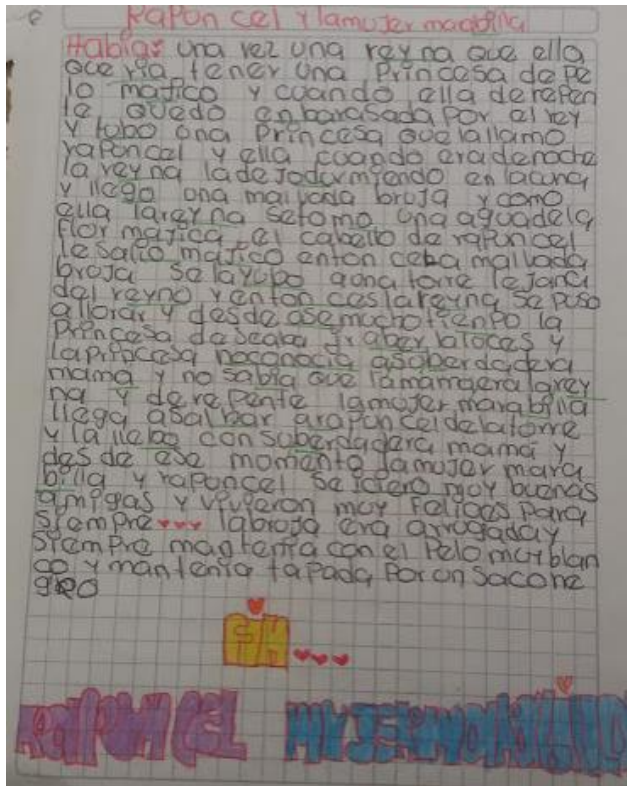 Raponcel y lamujer marabilla
Habias una vez una reyna que ella
queria tener una Princesa de pe
lo majico y cuando ella derepen
te quedo enbarasada por el rey
y tubo una princesa quelallamo
raponcel y ella cuando eradenoche
la reyna ladejodurmiendo en lacuna
y llego una malvada bruja y como
ella lareyna setomo una aguadela
flor majica el cabello de rapuncel
le salio majico enton cesla mallvada
broja selayebo aona torre lejana
del reyno y enton ceslareyna se puso
allorar y desde asemuchotienpo la
princesa deseaba
laprincesa noconocia asaberdadera
mama y no sabia que lamamaera larey
na y derepente lamujer marabilla
llega asalbar araponceldelatorre
y la llebo consuberdadera mamá y
des de ese momento lamujer mara
billa y raponcel seiciero moy buenas
amigas y vivieron moy felices para
siempre labroja era arrogada y
siempre mantenia con el pelo moyblan
co y mantenia tapada por un saco ne
gro
FIN...
RAPONCEL MUJERMARABILLA